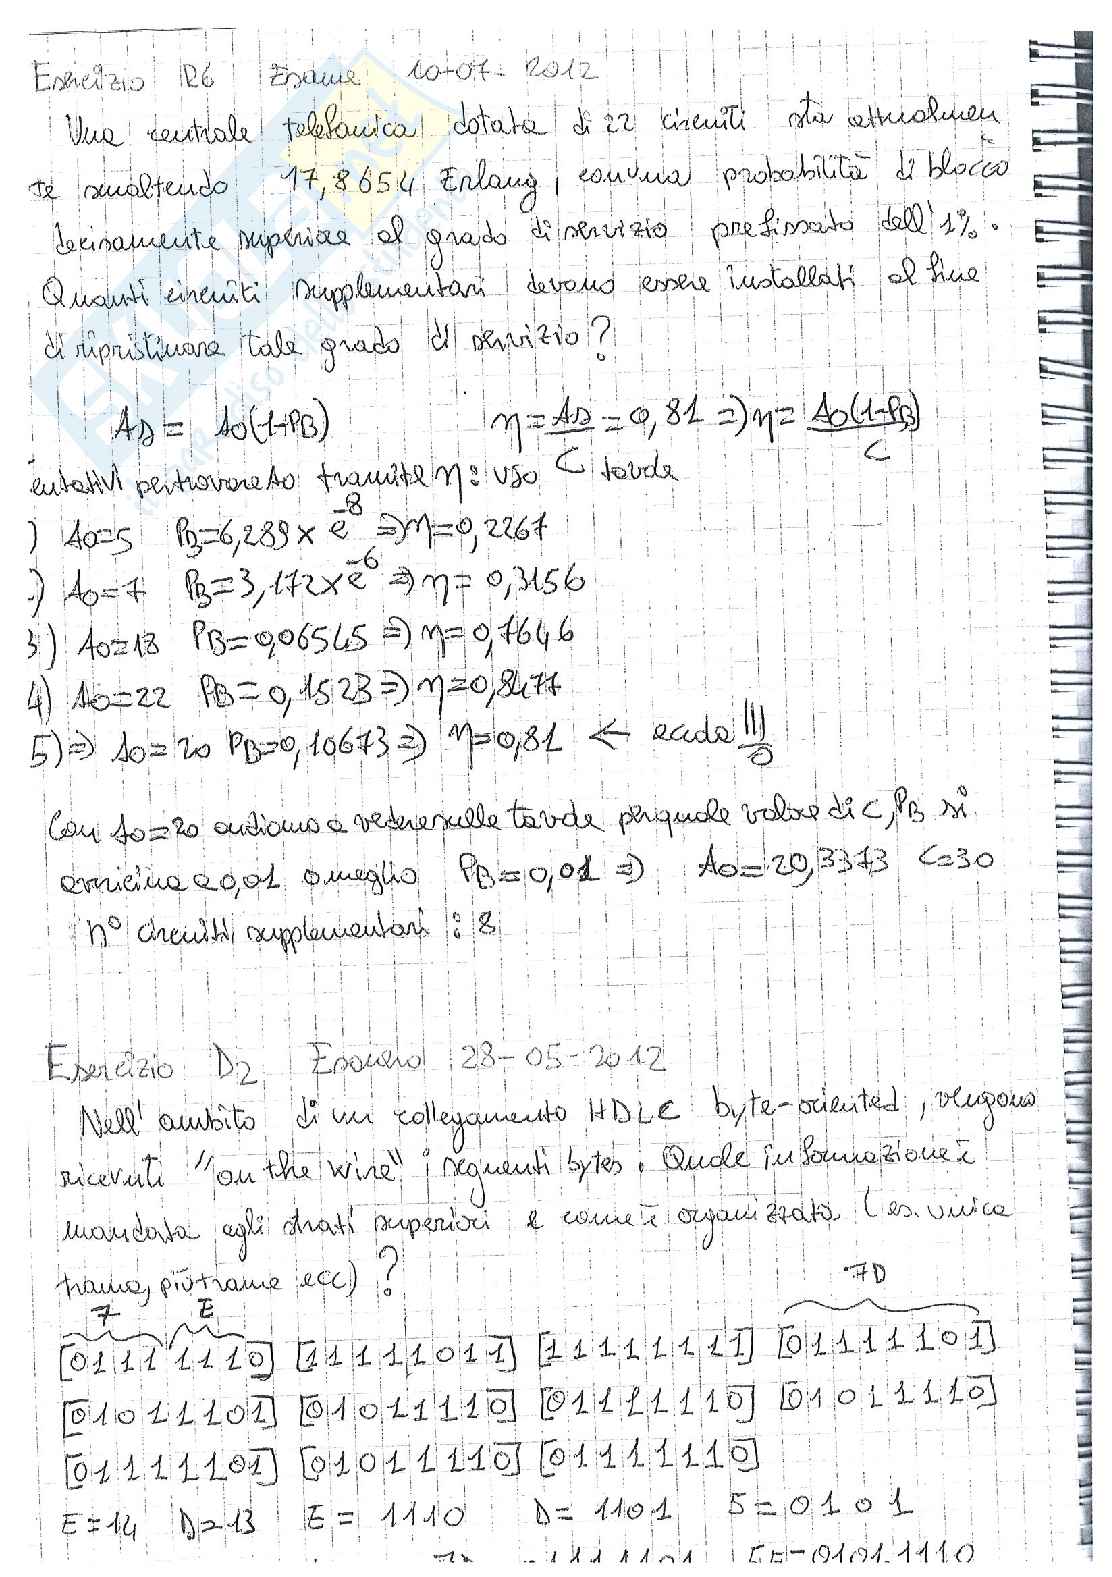 Esercizio R6 Esame 10-07-2012
Una centrale telefonica dotata di 22 circuiti sta attualmen
te smaltendo 17,8654 Erlang, con una probabilità di blocco
decisamente superiore al grado di servizio prefissato dell'1%.
Quanti circuiti supplementari devono essere installati al fine
di ripristinare tale grado di servizio?
As = Ao(1-PB) η = As/C = 0,81 => η = Ao(1-PB)/C
entativi per trovare Ao tramite η: uso tavole
) Ao=5 PB=6,289 x e^-8 => η=0,2267
.) Ao=7 PB=3,172 x e^-6 => η= 0,3156
3) Ao=18 PB=0,06545 => η=0,7646
4) Ao=22 PB=0,1523 => η=0,8477
5) => Ao=20 PB=0,10673 => η=0,81 ←
Con Ao=20 andiamo a vedere sulle tavole per quale valore di C, PB si
avvicina a 0,01 o meglio PB=0,01 => Ao=20,3373 C=30
n° circuiti supplementari: 8
Esercizio D2 Esonero 28-05-2012
Nell'ambito di un collegamento HDLC byte-oriented, vengono
ricevuti "on the wire" i seguenti bytes. Quale informazione è
mandata agli strati superiori e come è organizzata (es. unica
trama, più trame ecc)?
7 E 7D
[01111110] [11111011] [11111111] [01111101]
[01011101] [01011110] [01111110] [01011110]
[01111101] [01011110] [01111110]
E=14 D=13 E= 1110 D= 1101 5=0101
5E=01011110